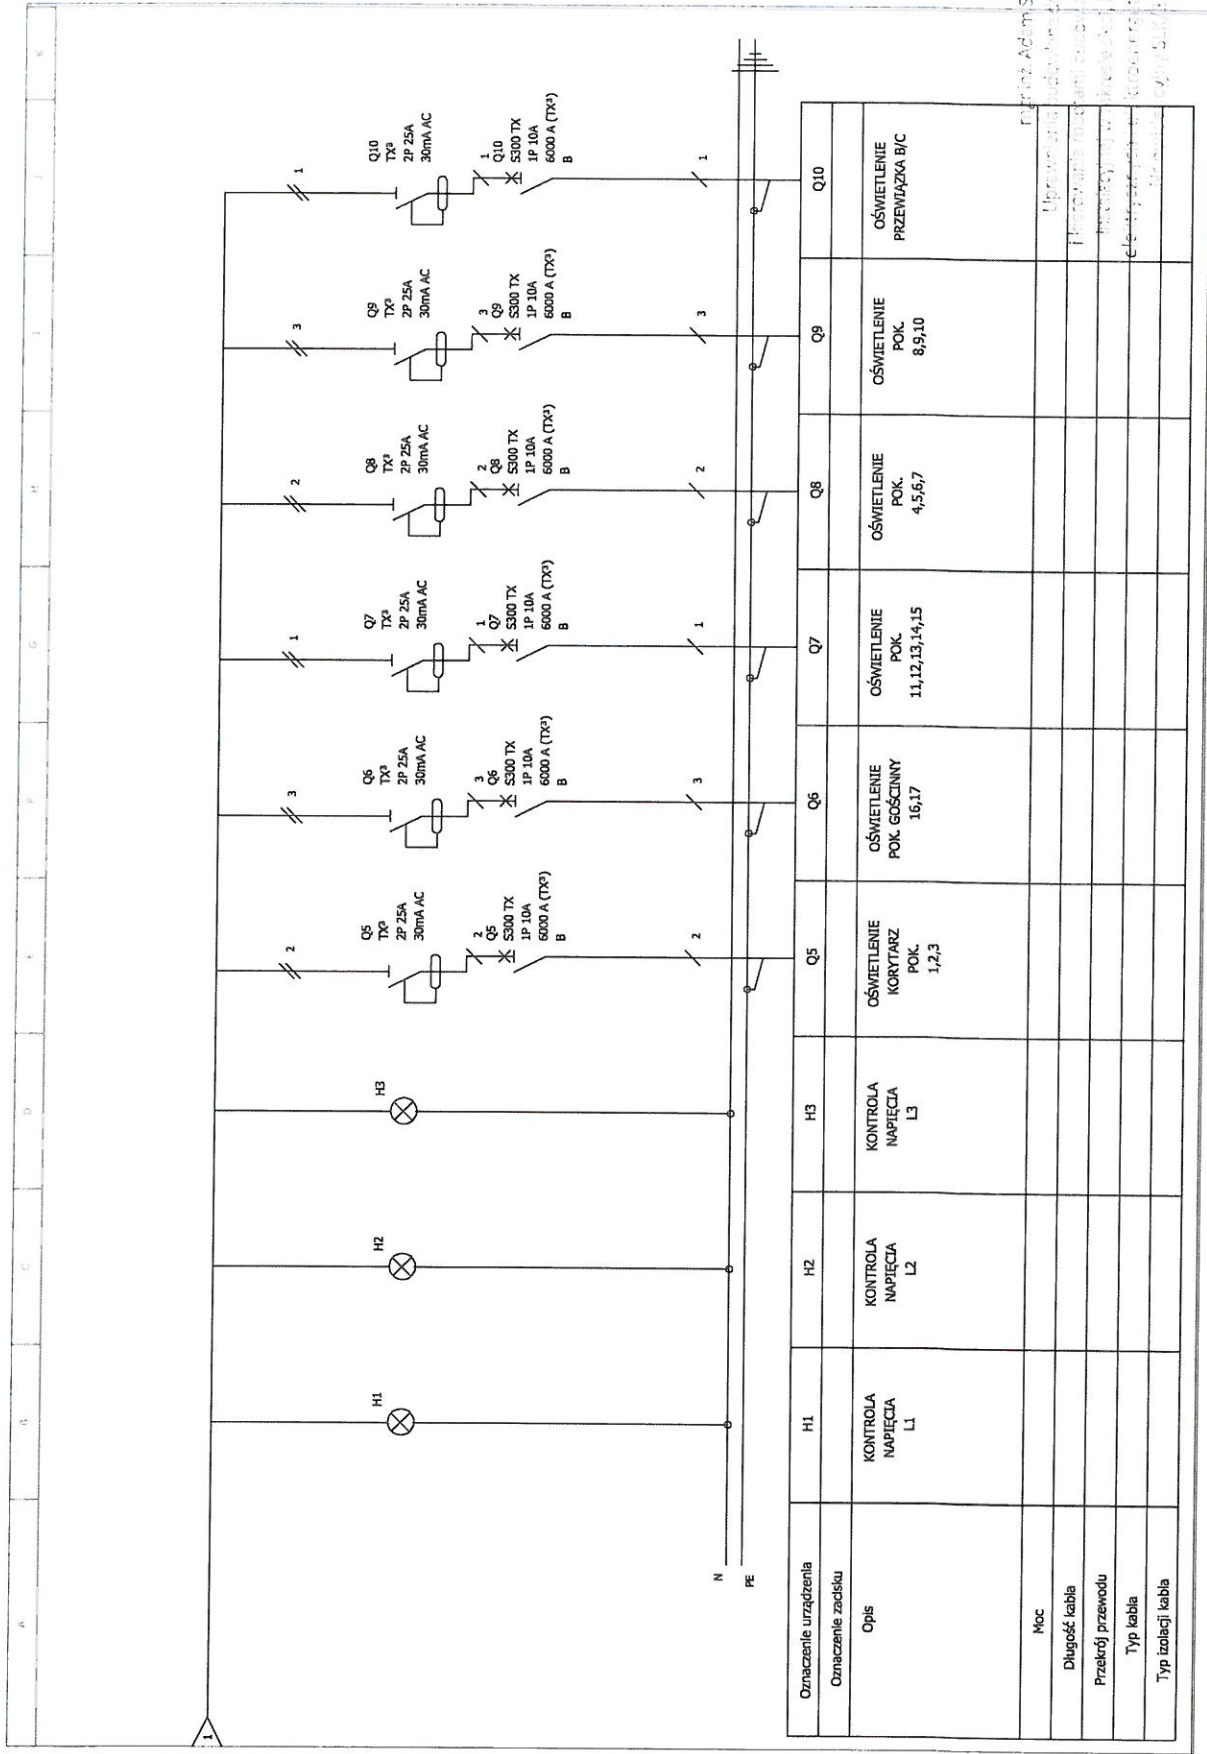 A B C D E F G H I J K
1
H1
H2
H3
2
Q5
TX³
2P 25A
30mA AC
2
Q5
S300 TX
1P 10A
6000 A (TX³)
B
2
3
Q6
TX³
2P 25A
30mA AC
3
Q6
S300 TX
1P 10A
6000 A (TX³)
B
3
1
Q7
TX³
2P 25A
30mA AC
1
Q7
S300 TX
1P 10A
6000 A (TX³)
B
1
2
Q8
TX³
2P 25A
30mA AC
2
Q8
S300 TX
1P 10A
6000 A (TX³)
B
2
3
Q9
TX³
2P 25A
30mA AC
3
Q9
S300 TX
1P 10A
6000 A (TX³)
B
3
1
Q10
TX³
2P 25A
30mA AC
1
Q10
S300 TX
1P 10A
6000 A (TX³)
B
1
N
PE
Oznaczenie urządzenia H1 H2 H3 Q5 Q6 Q7 Q8 Q9 Q10
Oznaczenie zacisku
Opis
KONTROLA
NAPIĘCIA
L1
KONTROLA
NAPIĘCIA
L2
KONTROLA
NAPIĘCIA
L3
OŚWIETLENIE
KORYTARZ
POK.
1,2,3
OŚWIETLENIE
POK. GOŚCINNY
16,17
OŚWIETLENIE
POK.
11,12,13,14,15
OŚWIETLENIE
POK.
4,5,6,7
OŚWIETLENIE
POK.
8,9,10
OŚWIETLENIE
PRZEWIĄZKA B/C
Moc
Długość kabla
Przekrój przewodu
Typ kabla
Typ izolacji kabla
mgr inż. Adam